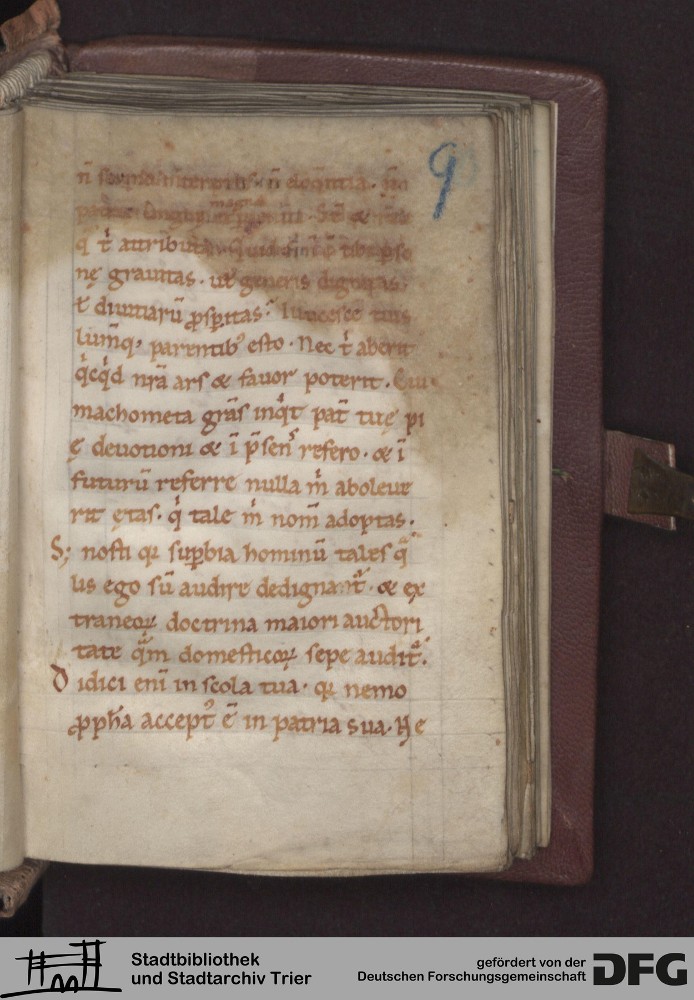 9
n̄ eloq̄ntia.
magna
q͛ t͛ attribut
nę grauitas. ut generis dignitas.
t͛ diuitiarū ꝓsp̱itas. Iuuenesce tuis
parentib᷒ esto. Nec t͛ aberit
q͛cq͛d nr̄a ars & fauor poterit.
machometa grās inq͛t pat̄ tuę pi
ę deuotioni & ī p̄sen᷒ refero. & ī
futurū referre nulla m͛ aboleue
rit ętas. q͛ tale m͛ nom̄ adoptas.
S; nosti qꝛ sup̱bia hominū tales q̄
lis ego sū audire dedignant᷑. & ex
traneoꝝ doctrina maiori auctori
tate q̄m domesticoꝝ sepe audit᷑.
Didici eni̅ in scola tua. qꝛ nemo
ꝓph̄a accept᷒ ē in patria sua. Hę
Stadtbibliothek
und Stadtarchiv Trier
gefördert von der
Deutschen Forschungsgemeinschaft
DFG